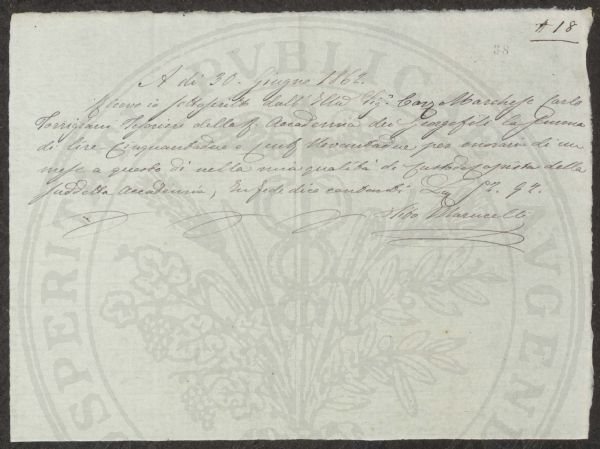 # 18
38
A di 30. Giugno 1862.
Ricevo io sottoscritto dall' Illmo Sigr. Cav. Marchese Carlo
Torrigiani Tesoriere della R. Accademia dei Georgofili la Somma
di lire Cinquantadue e Cent. Novantadue per onorario di un
mese a questo dì nella mia qualità di Custode copista della
suddetta Accademia, In fede dico contanti £ 52. 92.
Marucelli
PVBLICAE
PROSPERITATI
AVGENDAE